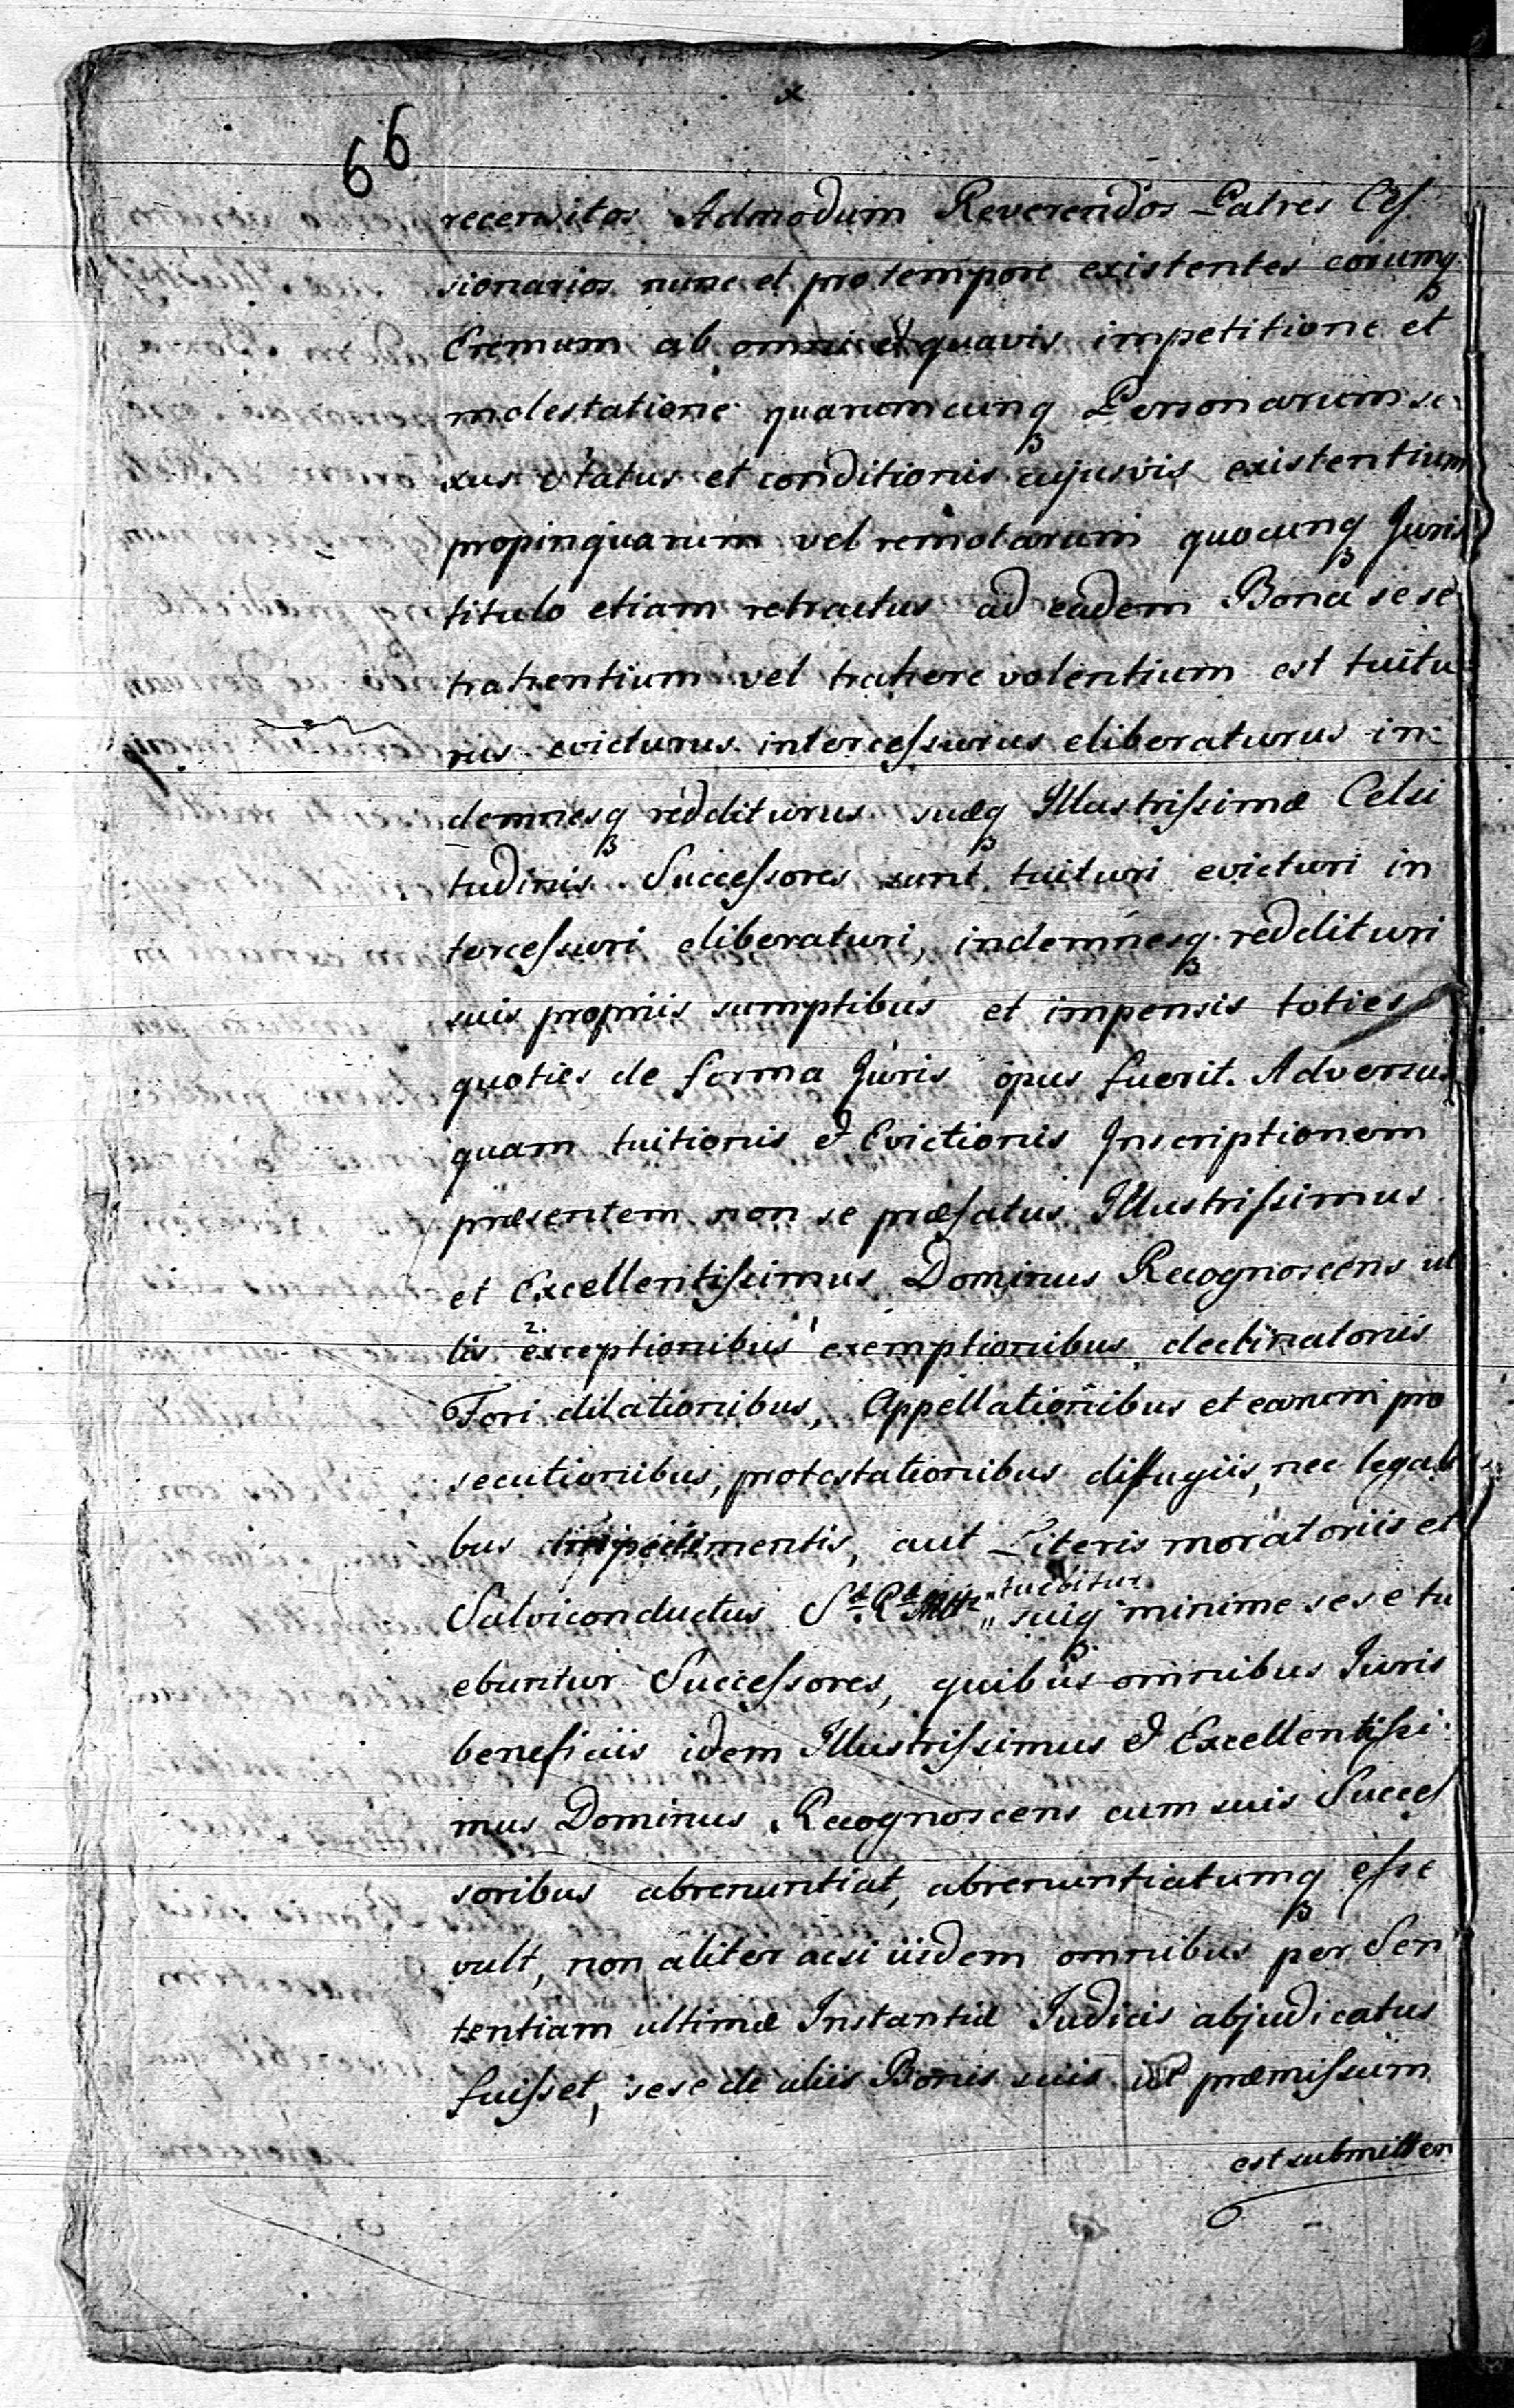 66
recensitos Admodum Reverendos Patres Ces
sionarios nunc et pro tempore existentes eorumq₃
Eremum ab omni et quavis impetitione et
molestatione quarumcunq₃ Personarum se-
xus status et conditionis cujusvis existentium
propinquarum vel remotarum quocunq₃ Juris
titulo etiam retractus ad eadem Bona sese
trahentium vel trahere volentium est tuitu
rus evicturus intercessurus eliberaturus in-
demnesq₃ redditurus suæq₃ Illustrissimæ Celsi
tudinis Successores sunt tuituri evicturi in
tercessuri eliberaturi, indemnesq₃ reddituri
suis propriis sumptibus et impensis toties
quoties de forma Juris opus fuerit. Adversus
quam tuitionis et Evictionis Inscriptionem
præsentem non se præfatus Illustrissimus
et Excellentissimus Dominus Recognoscens ul
lis ²exceptionibus ¹exemptionibus declinatoriis
Fori dilationibus, Appellationibus et earum pro
secutionibus, protestationibus diffugiis, nec legali
bus impedimentis, aut Literis moratoriis et
tuebitur
Salviconductus Sæ Ræ Mttis " suiq₃ minime sese tu
ebuntur Successores, quibus omnibus Juris
beneficiis idem Illustrissimus et Excellentissi-
mus Dominus Recognoscens cum suis Succes
soribus abrenuntiat, abrenuntiatumq₃ esse
vult, non aliter acsi iidem omnibus per Sen
tentiam ultimæ Instantiæ Judicis abjudicatus
fuisset, sese de aliis Bonis suis ut præmissum
est submitten